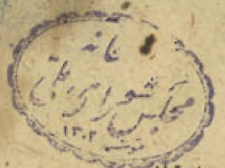 خانه
مجلس شورای ملی
۱۳۰۲